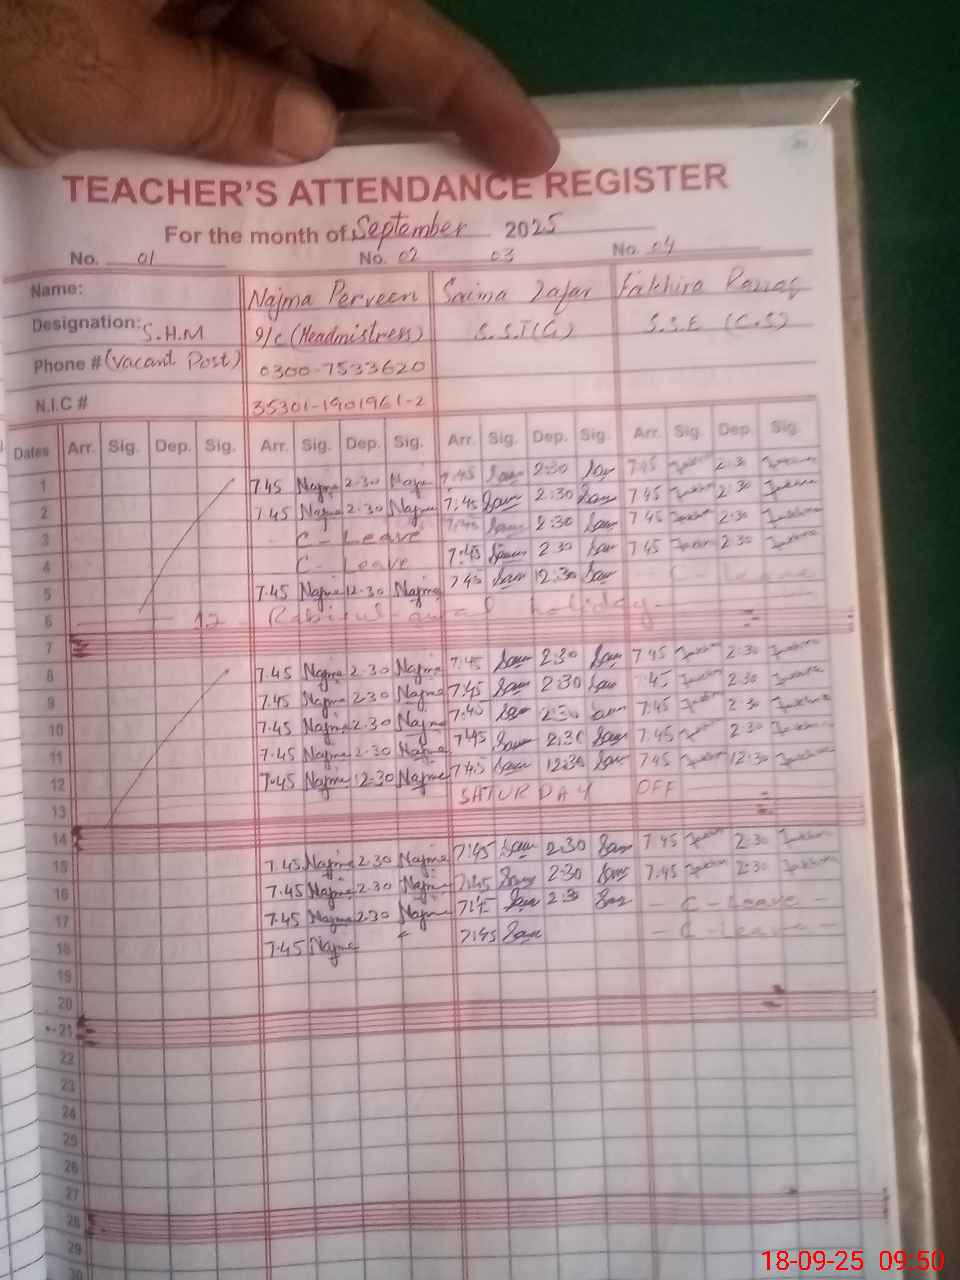 TEACHER'S ATTENDANCE REGISTER
For the month of September 2025
No. 01 No. 02 03 No. 04
Name: Najma Perveen Saima Zafar Fakhira Razzaq
Designation: S.H.M I/c (Headmistress) S.S.T(G) S.S.E (C.S)
Phone # (Vacant Post) 0300-7533620
N.I.C # 35301-1901961-2
Dates Arr. Sig. Dep. Sig. Arr. Sig. Dep. Sig. Arr. Sig. Dep. Sig. Arr. Sig. Dep. Sig.
1 7.45 Najma 2.30 Najma 7:45 Sam 2:30 Sam 7.45 2:30
2 7.45 Najma 2.30 Najma 7:45 Sam 2:30 Sam 7.45 2:30
3 C - Leave 7:45 Sam 2:30 Sam 7.45 2:30
4 C - Leave 7:45 Sam 2:30 Sam 7.45 2:30
5 7.45 Najma 12.30 Najma 7:45 Sam 12:30 Sam C - Leave
6 12 Rabi-ul-awal holiday
7
8 7.45 Najma 2.30 Najma 7:45 Sam 2:30 Sam 7.45 2:30
9 7.45 Najma 2.30 Najma 7:45 Sam 2:30 Sam 7.45 2.30
10 7.45 Najma 2.30 Najma 7:45 Sam 2:30 Sam 7.45 2.30
11 7.45 Najma 2.30 Najma 7:45 Sam 2:30 Sam 7.45 2.30
12 7.45 Najma 12.30 Najma 7:45 Sam 12:30 Sam 7.45 12:30
13 SATURDAY OFF
14
15 7.45 Najma 2.30 Najma 7:45 Sam 2:30 Sam 7.45 2:30
16 7.45 Najma 2.30 Najma 7:45 Sam 2:30 Sam 7.45 2:30
17 7.45 Najma 2.30 Najma 7:45 Sam 2:30 Sam - C - Leave -
18 7.45 Najma 7:45 Sam - C - Leave -
19
20
21
22
23
24
25
26
27
28
29
30
18-09-25 09:50